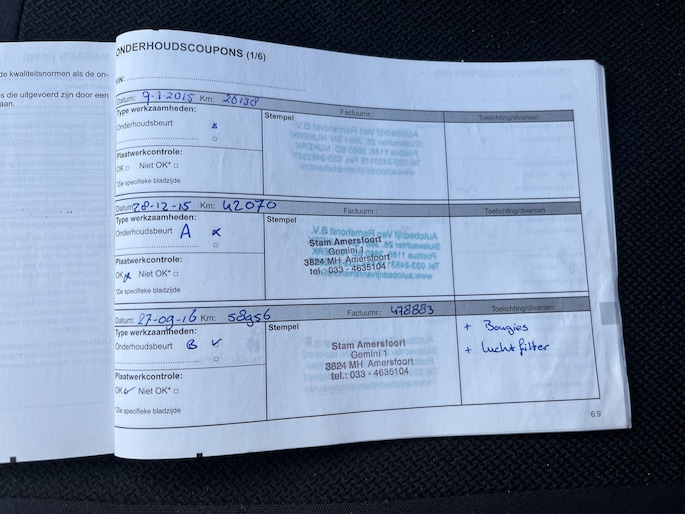 de kwaliteitsnormen als de on-
s die uitgevoerd zijn door een
aan.
ONDERHOUDSCOUPONS (1/6)
VIN:
Datum: 9-1-2015 Km: 20138 Factuurnr.: Toelichting/diversen
Type werkzaamheden:
Stempel
Onderhoudsbeurt x
Plaatwerkcontrole:
OK Niet OK*
*Zie specifieke bladzijde
Datum: 28-12-15 Km: 42070 Factuurnr.: Toelichting/diversen
Type werkzaamheden:
Stempel
Onderhoudsbeurt A x
Stam Amersfoort
Gemini 1
3824 MH Amersfoort
tel.: 033 - 4635104
Plaatwerkcontrole:
OK x Niet OK*
*Zie specifieke bladzijde
Datum: 27-09-16 Km: 58956 Factuurnr.: 478883 Toelichting/diversen
Type werkzaamheden:
Stempel
Onderhoudsbeurt B ✓
Stam Amersfoort
Gemini 1
3824 MH Amersfoort
tel.: 033 - 4635104
+ Bougies
+ luchtfilter
Plaatwerkcontrole:
OK ✓ Niet OK*
*Zie specifieke bladzijde
6.9